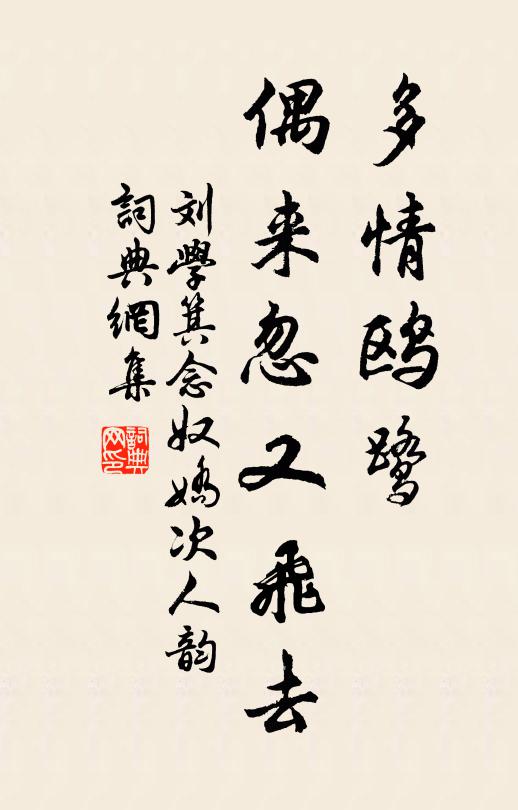 多情鸥鹭
偶来忽又飛去
刘學箕念奴嬌次人韵
詞典網集
詞典
网印